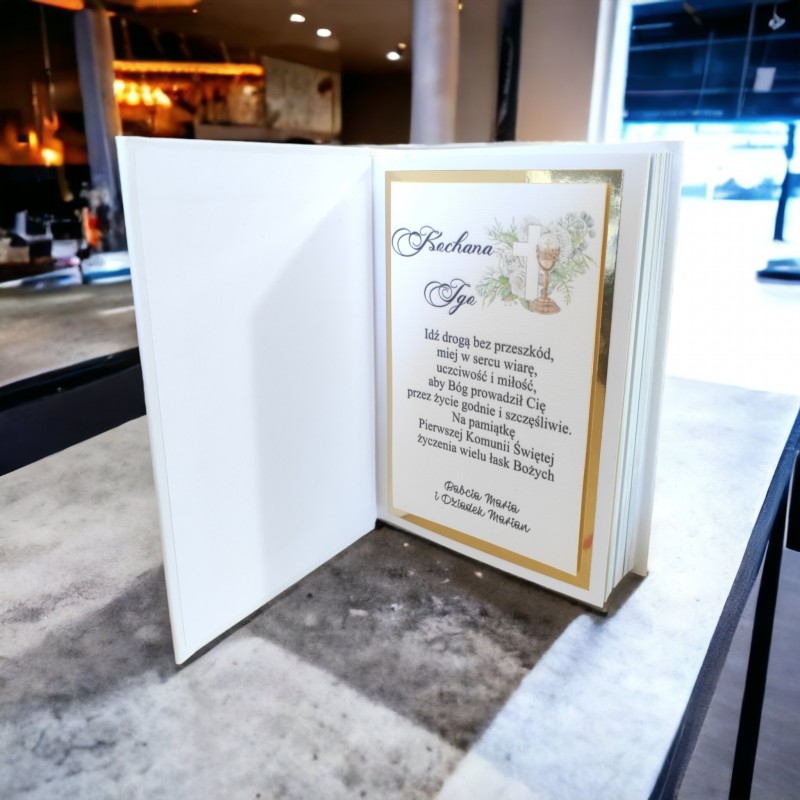 Kochana
Igo
Idź drogą bez przeszkód,
miej w sercu wiarę,
uczciwość i miłość,
aby Bóg prowadził Cię
przez życie godnie i szczęśliwie.
Na pamiątkę
Pierwszej Komunii Świętej
życzenia wielu łask Bożych
Babcia Maria
i Dziadek Marian